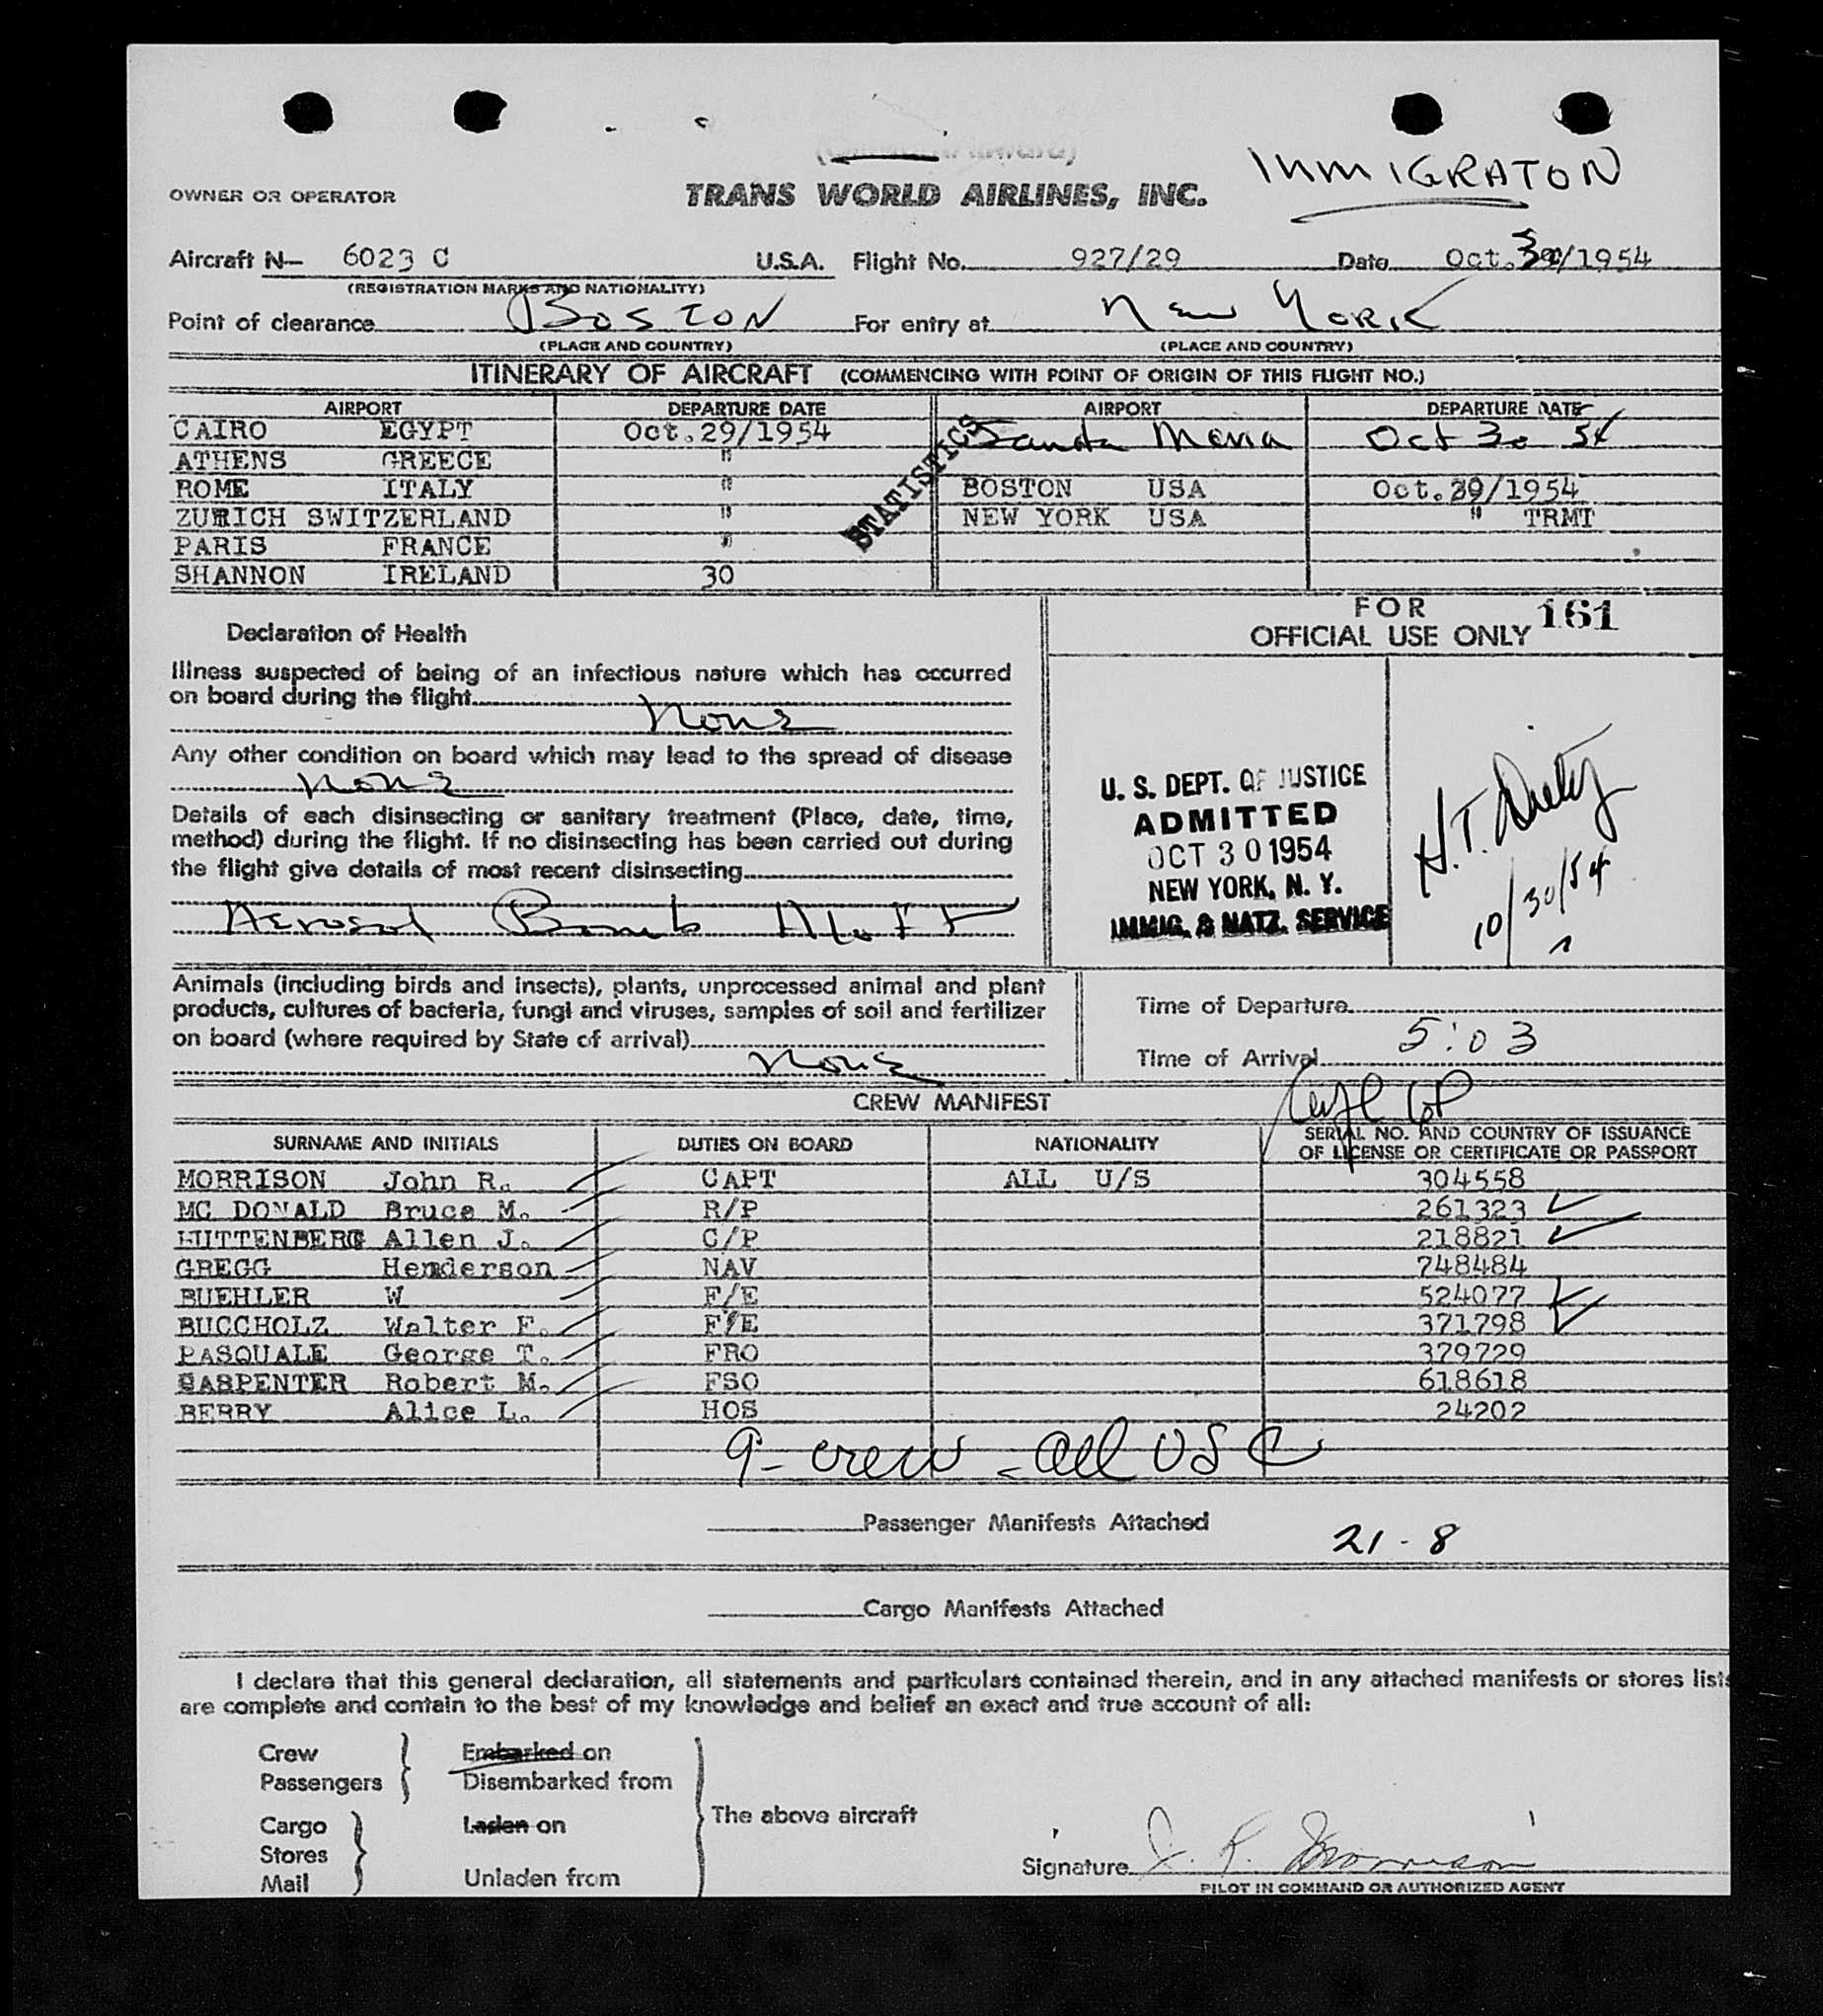 INMIGRATON
OWNER OR OPERATOR TRANS WORLD AIRLINES, INC.
Aircraft N- 6023 C U.S.A. Flight No. 927/29 Date Oct. 30/1954
(REGISTRATION MARKS AND NATIONALITY)
Point of clearance BOSTON For entry at New York
(PLACE AND COUNTRY) (PLACE AND COUNTRY)
ITINERARY OF AIRCRAFT (COMMENCING WITH POINT OF ORIGIN OF THIS FLIGHT NO.)
AIRPORT DEPARTURE DATE AIRPORT DEPARTURE DATE
CAIRO EGYPT Oct.29/1954 Santa Maria Oct 30 54
ATHENS GREECE "
ROME ITALY " BOSTON USA Oct.30/1954
ZURICH SWITZERLAND " NEW YORK USA " TRMT
PARIS FRANCE "
SHANNON IRELAND 30
STATISTICS
FOR
OFFICIAL USE ONLY 161
Declaration of Health
Illness suspected of being of an infectious nature which has occurred
on board during the flight
None
Any other condition on board which may lead to the spread of disease
None
Details of each disinsecting or sanitary treatment (Place, date, time,
method) during the flight. If no disinsecting has been carried out during
the flight give details of most recent disinsecting
Aerosol Bomb
U. S. DEPT. OF JUSTICE
ADMITTED
OCT 30 1954
NEW YORK, N. Y.
IMMIG. & NATZ. SERVICE
H.T.
10/30/54
Animals (including birds and insects), plants, unprocessed animal and plant
products, cultures of bacteria, fungi and viruses, samples of soil and fertilizer
on board (where required by State of arrival)
None
Time of Departure
Time of Arrival 5:03
CREW MANIFEST
SURNAME AND INITIALS DUTIES ON BOARD NATIONALITY SERIAL NO. AND COUNTRY OF ISSUANCE
OF LICENSE OR CERTIFICATE OR PASSPORT
MORRISON John R. CAPT ALL U/S 304558
MC DONALD Bruce M. R/P 261323
HUTTENBERG Allen J. C/P 218821
GREGG Henderson NAV 748484
BUEHLER W F/E 524077
BUCCHOLZ Walter F. F/E 371798
PASQUALE George T. FRO 379729
CARPENTER Robert M. FSO 618618
BERRY Alice L. HOS 24202
9 - crew - all USC
Passenger Manifests Attached 21 - 8
Cargo Manifests Attached
I declare that this general declaration, all statements and particulars contained therein, and in any attached manifests or stores lists
are complete and contain to the best of my knowledge and belief an exact and true account of all:
Crew Embarked on
Passengers Disembarked from
The above aircraft
Cargo Laden on
Stores
Mail Unladen from
Signature J. R. Morrison
PILOT IN COMMAND OR AUTHORIZED AGENT